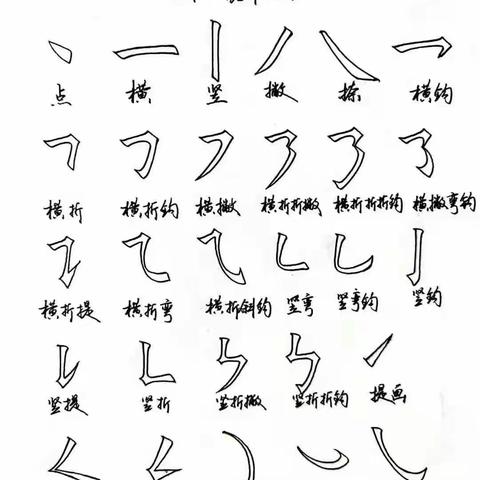 点 横 竖 撇 捺 横钩
横折 横折钩 横撇 横折折撇 横折折折钩 横撇弯钩
横折提 横折弯 横折斜钩 竖弯 竖弯钩 竖钩
竖提 竖折 竖折撇 竖折折钩 提画